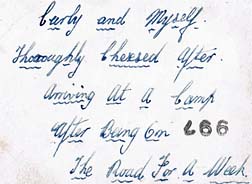 Curly and Myself.
Thoroughly Cheesed After.
Arriving At A Camp
After Being On 299
The Road For A Week